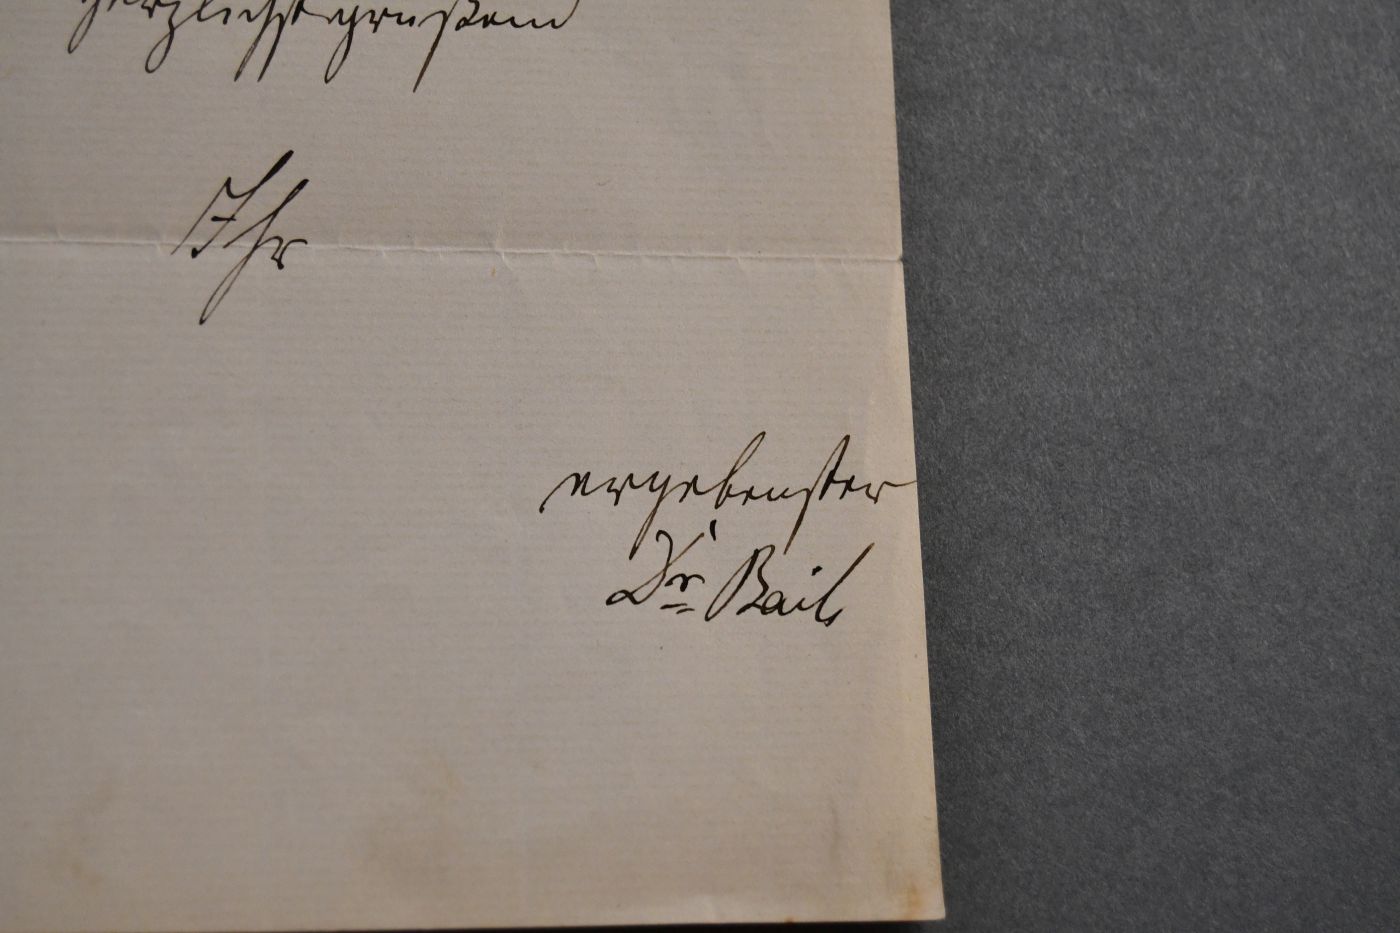 herzlichst grüßend
Ihr
ergebenster
Dr Bail